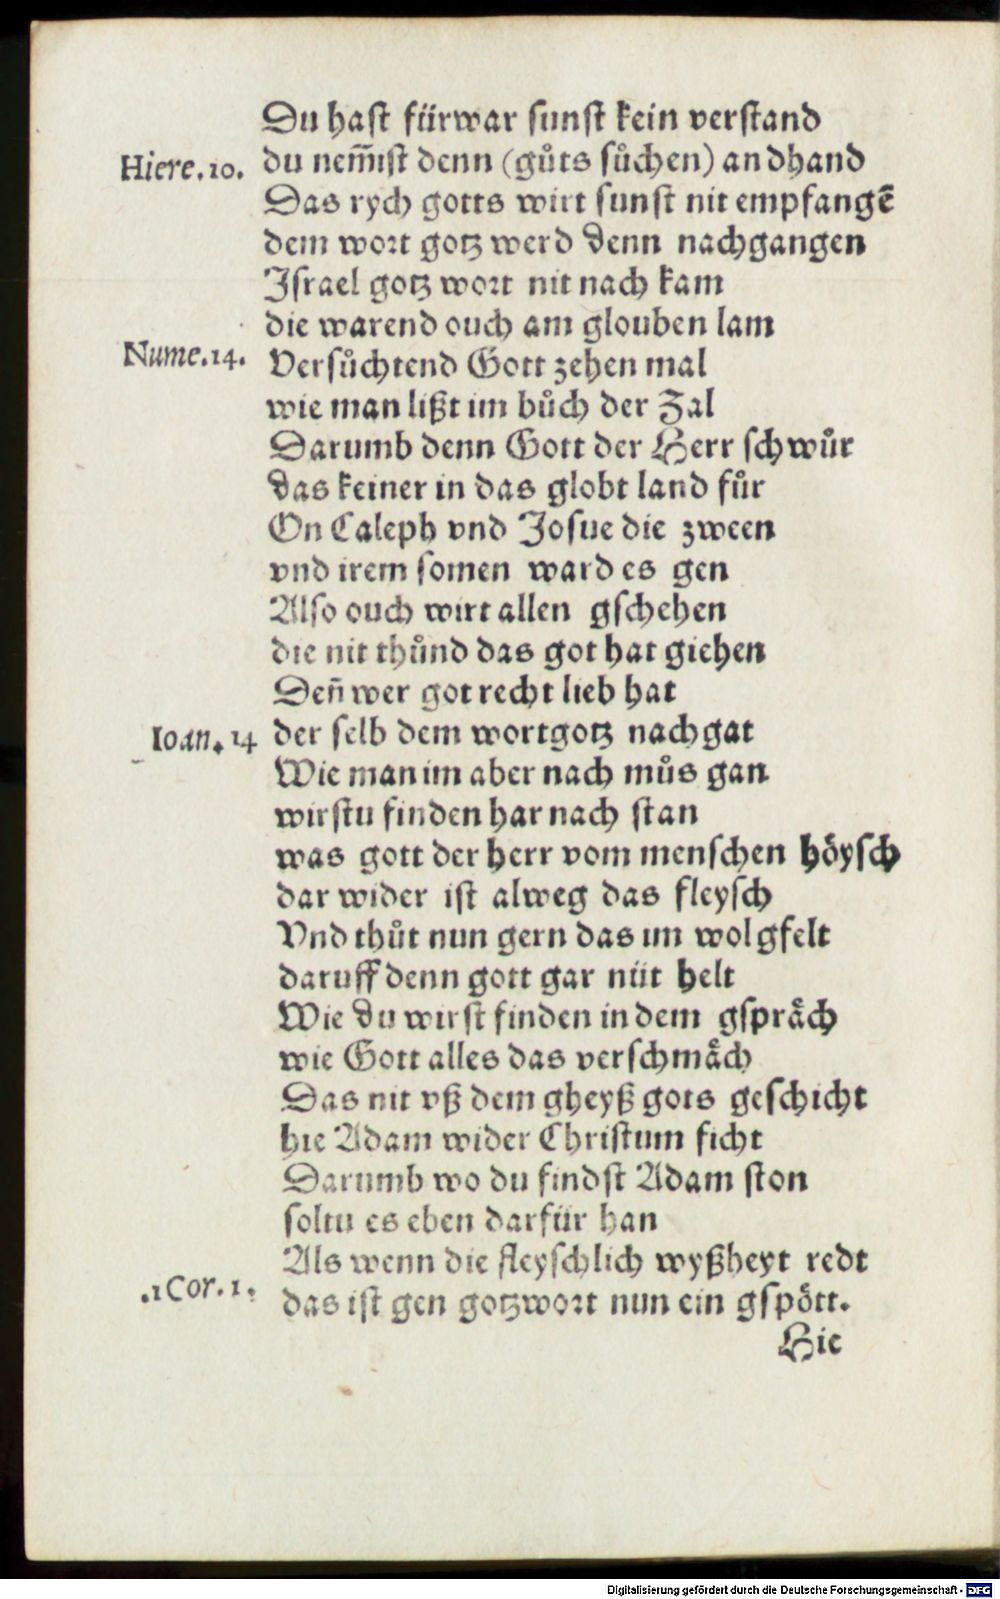 Du hast fürwar sunst kein verstand
Hiere.10. du nem̄ist denn (gůts sůchen) an dhand
Das rych gotts wirt sunst nit empfangē
dem wort gotz werd denn nachgangen
Israel gotz wort nit nach kam
die warend ouch am glouben lam
Nume.14. Versůchtend Gott zehen mal
wie man lißt im bůch der Zal
Darumb denn Gott der Herr schwůr
das keiner in das globt land fůr
On Caleph vnd Josue die zween
vnd irem somen ward es gen
Also ouch wirt allen gschehen
die nit thůnd das got hat giehen
Deñ wer got recht lieb hat
Ioan. 14 der selb dem wort gotz nachgat
Wie man im aber nach můs gan
wirstu finden har nach stan
was gott der herr vom menschen höysch
dar wider ist alweg das fleysch
Vnd thůt nun gern das im wolgfelt
daruff denn gott gar nüt helt
Wie du wirst finden in dem gspräch
wie Gott alles das verschmäch
Das nit vß dem gheyß gots geschicht
hie Adam wider Christum ficht
Darumb wo du findst Adam ston
soltu es eben darfür han
Als wenn die fleyschlich wyßheyt redt
.1Cor.1. das ist gen gotzwort nun ein gspött.
Hie
Digitalisierung gefördert durch die Deutsche Forschungsgemeinschaft - DFG